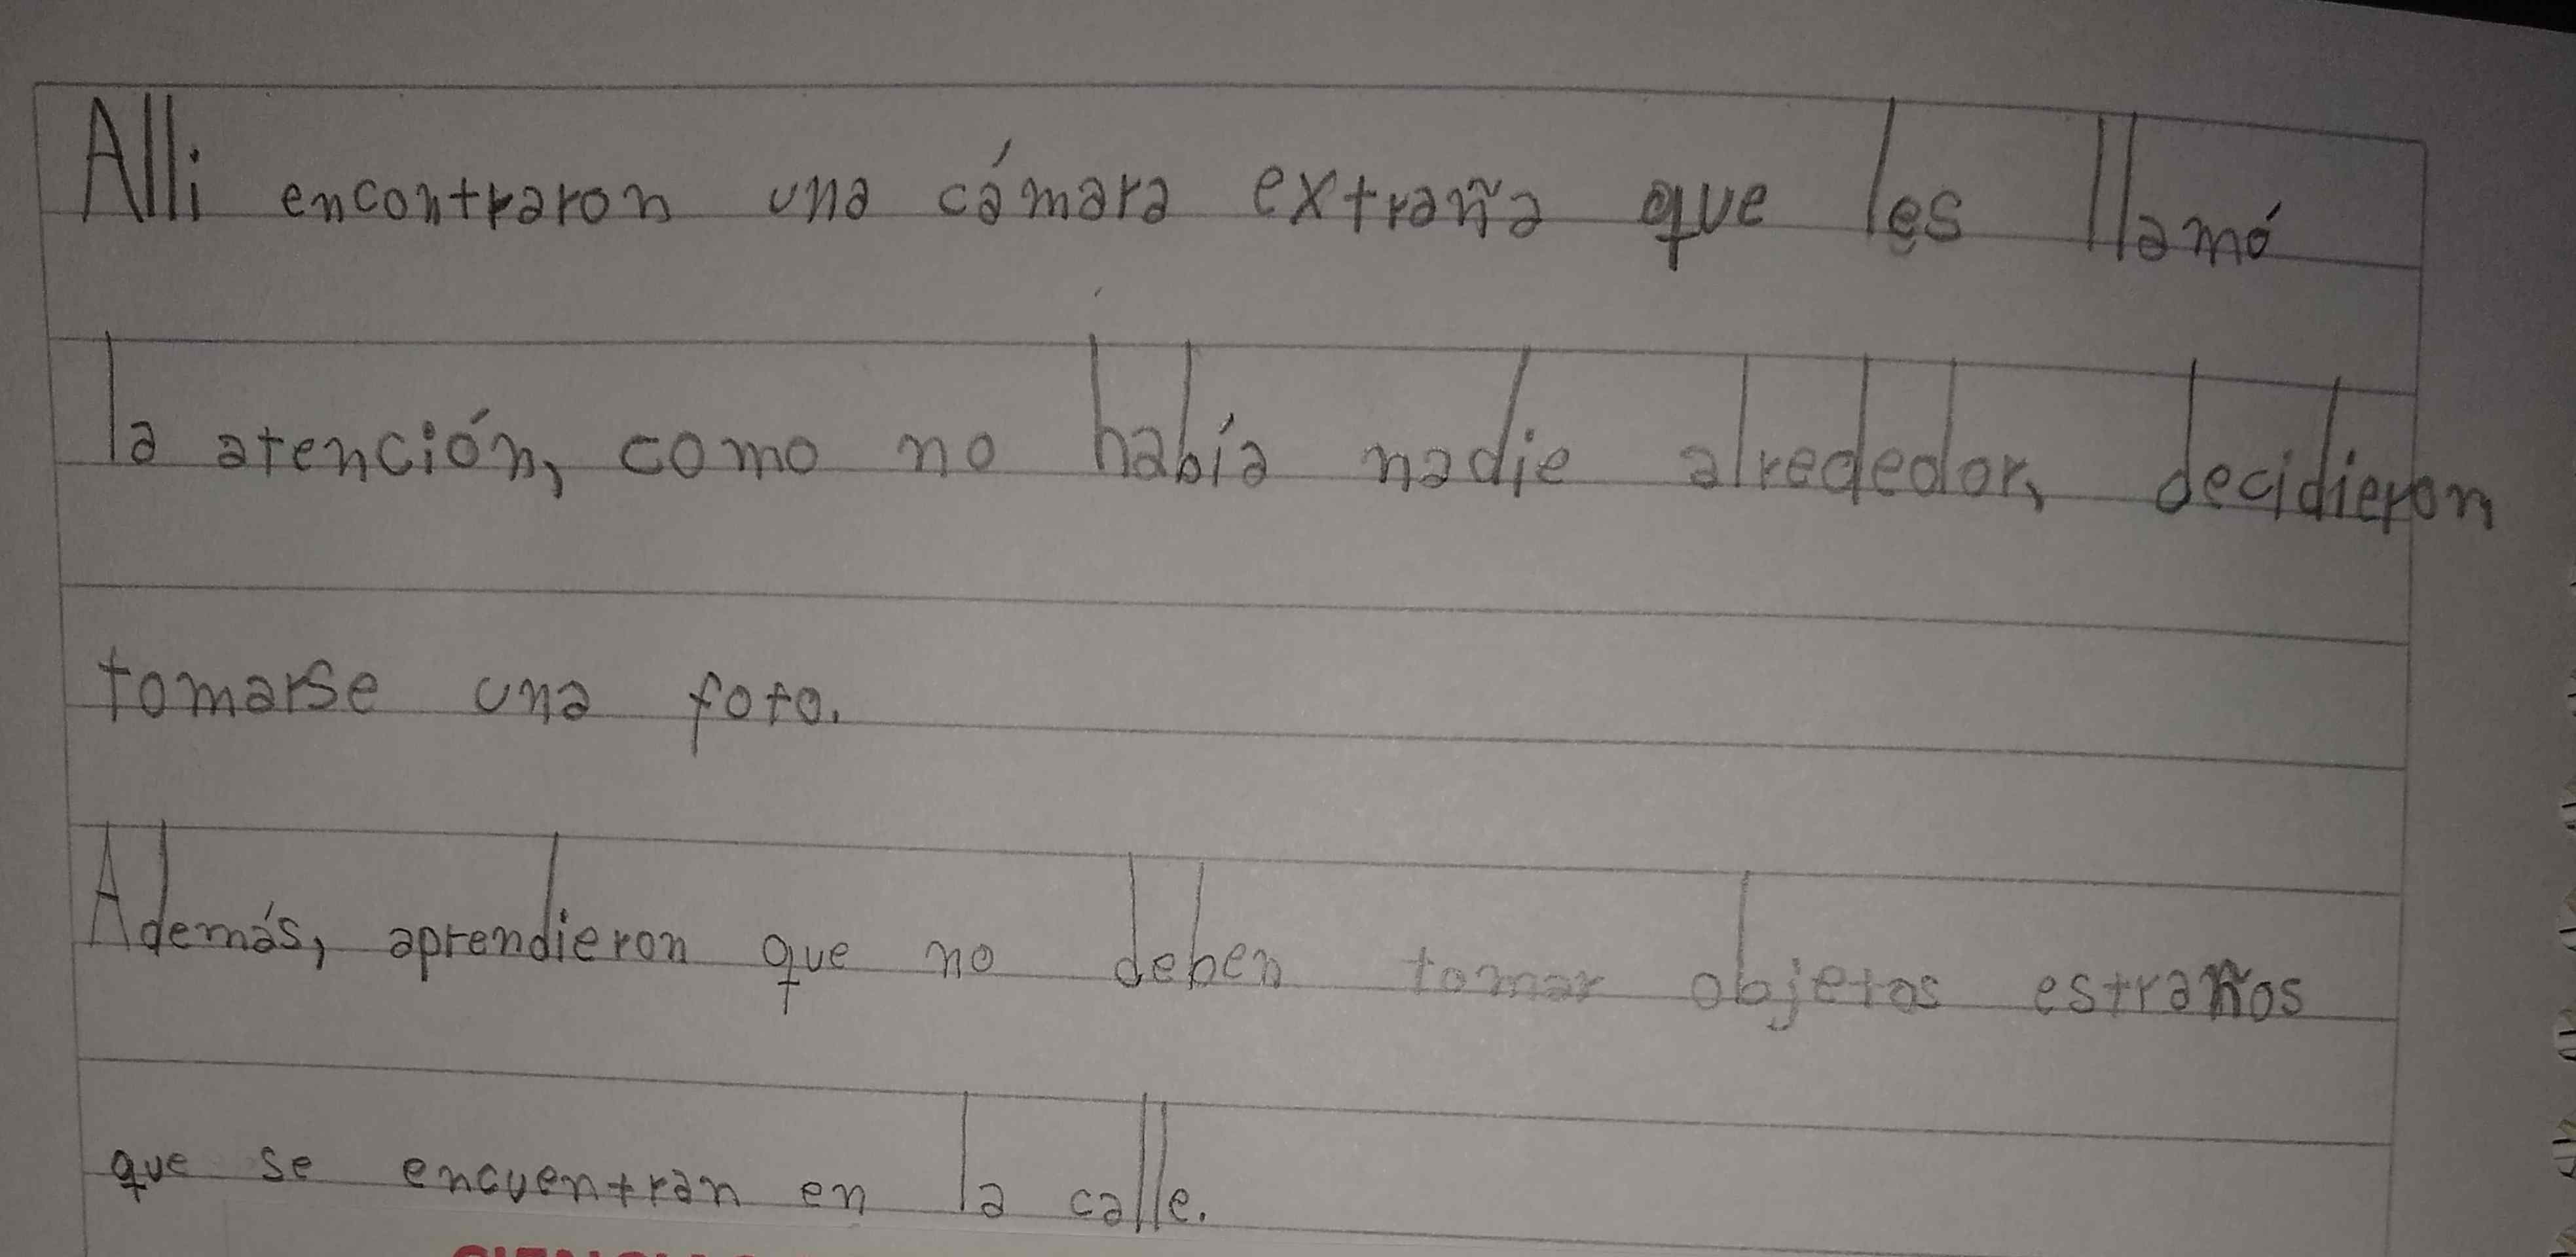 Alli encontraron una cámara extraña que les llamó
la atención, como no había nadie alrededor, decidieron
tomarse una foto.
Además, aprendieron que no deben tomar objetos estraños
que se encuentran en la calle.